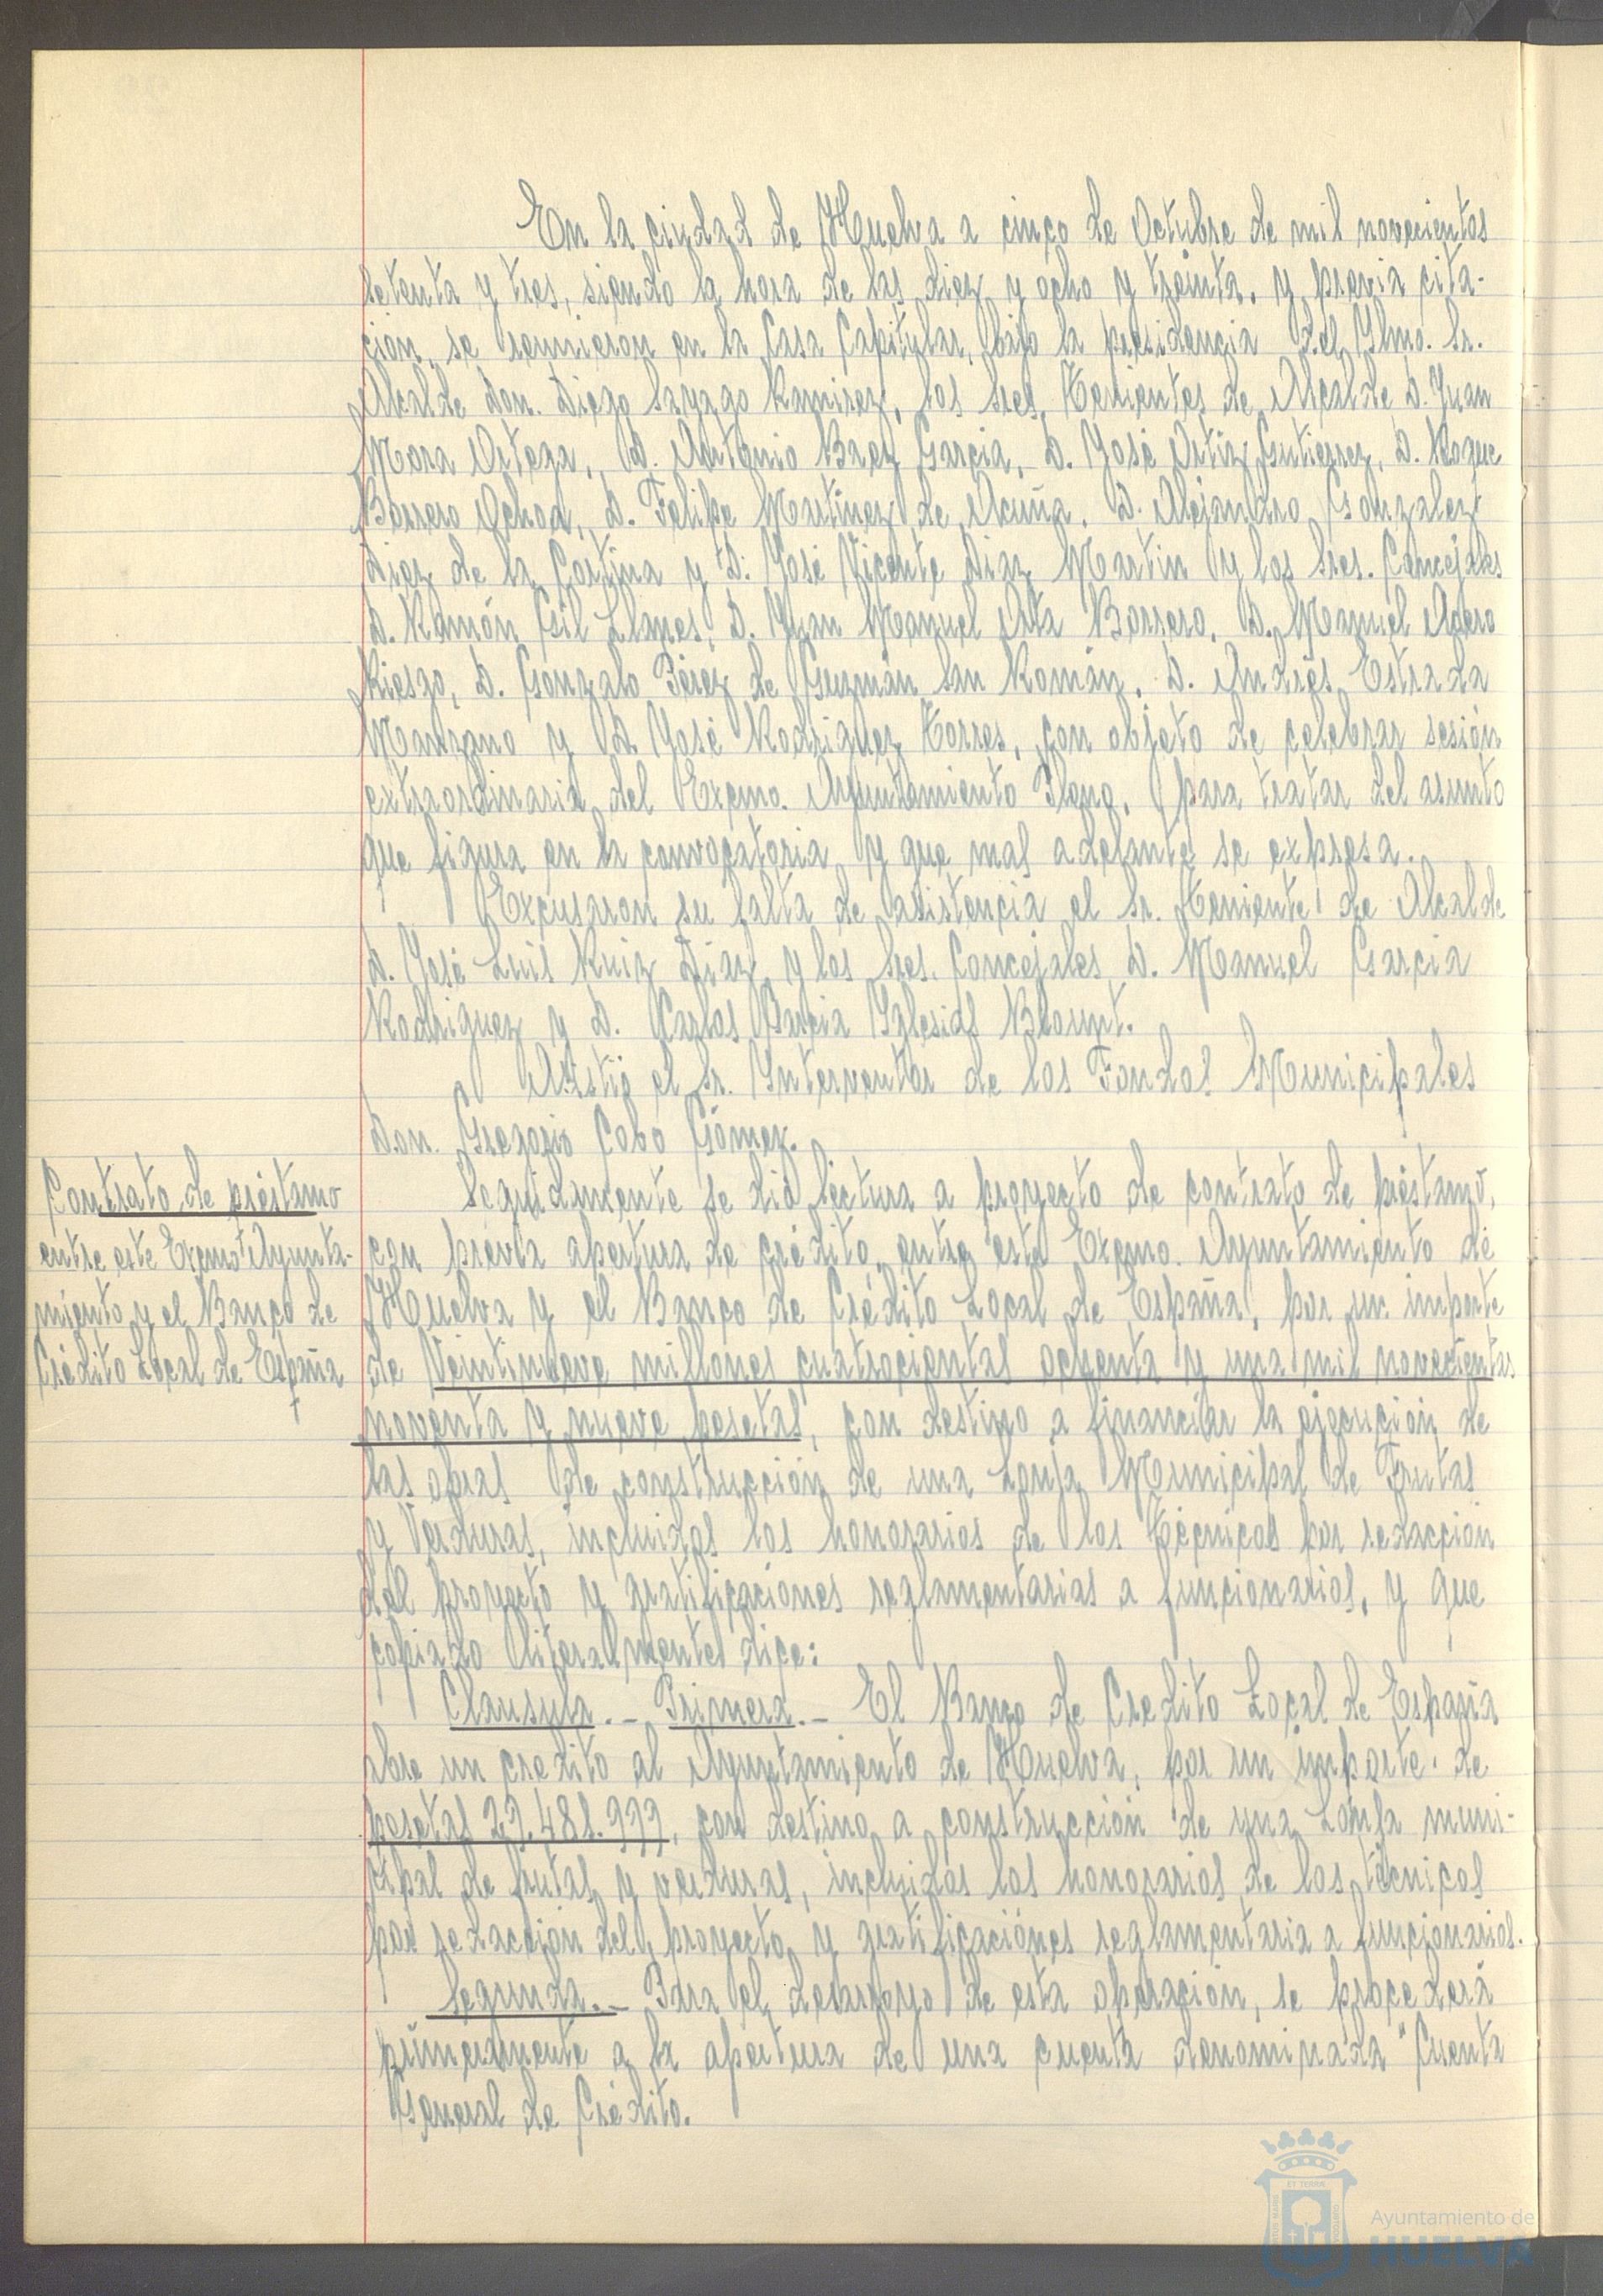 En la ciudad de Huelva a cinco de Octubre de mil novecientos
setenta y tres, siendo la hora de las diez y ocho y treinta, y previa cita-
ción, se reunieron en la Casa Capitular, bajo la presidencia del Ylmo. Sr.
Alcalde Don. Diego Sayago Ramirez, los Sres. Tenientes de Alcalde D. Juan
Mora Ortega, D. Antonio Baez Garcia, D. José Ortiz Gutierrez, D. Roque
Borrero Ochoa, D. Felipe Martinez de Acuña, D. Alejandro Gonzalez
Diez de la Cortina y D. José Vicente Diaz Martin y los Sres. Concejales
D. Ramón Gil Llanes, D. Juan Manuel Orta Borrero, D. Manuel Adero
Riesgo, D. Gonzalo Pérez de Guzmán San Román, D. Andrés Estrada
Manzano y D. José Rodriguez Torres, con objeto de celebrar sesión
extraordinaria del Excmo. Ayuntamiento Pleno, para tratar del asunto
que figura en la convocatoria y que mas adelante se expresa.
Excusaron su falta de asistencia el Sr. Teniente de Alcalde
D. José Luis Ruiz Diaz y los Sres. Concejales D. Manuel Garcia
Rodriguez y D. Carlos Garcia Yglesias Blount.
Asistió el Sr. Ynterventor de los Fondos Municipales
Don. Gregorio Cobo Gómez.
Contrato de préstamo
entre este Excmo Ayunta-
miento y el Banco de
Crédito Local de España
Seguidamente se dió lectura a proyecto de contrato de préstamo,
con previa apertura de crédito, entre este Excmo. Ayuntamiento de
Huelva y el Banco de Crédito Local de España, por un importe
de Veintinueve millones cuatrocientas ochenta y una mil novecientas
noventa y nueve pesetas, con destino a financiar la ejecución de
las obras de construcción de una Lonja Municipal de Frutas
y Verduras, incluidos los honorarios de los Técnicos por redacción
del proyecto y gratificaciones reglamentarias a funcionarios, y que
copiado literalmente dice:
Clausula.- Primera.- El Banco de Credito Local de España
abre un credito al Ayuntamiento de Huelva, por un importe de
pesetas 29.481.999, con destino a construcción de una Lonja muni-
cipal de frutas y verduras, incluidos los honorarios de los técnicos
por redacción del proyecto y gratificaciones reglamentaria a funcionarios.
Segunda.- Para el desarroyo de esta operación, se procederá
primeramente a la apertura de una cuenta denominada "Cuenta
General de Crédito.
Ayuntamiento de
HUELVA